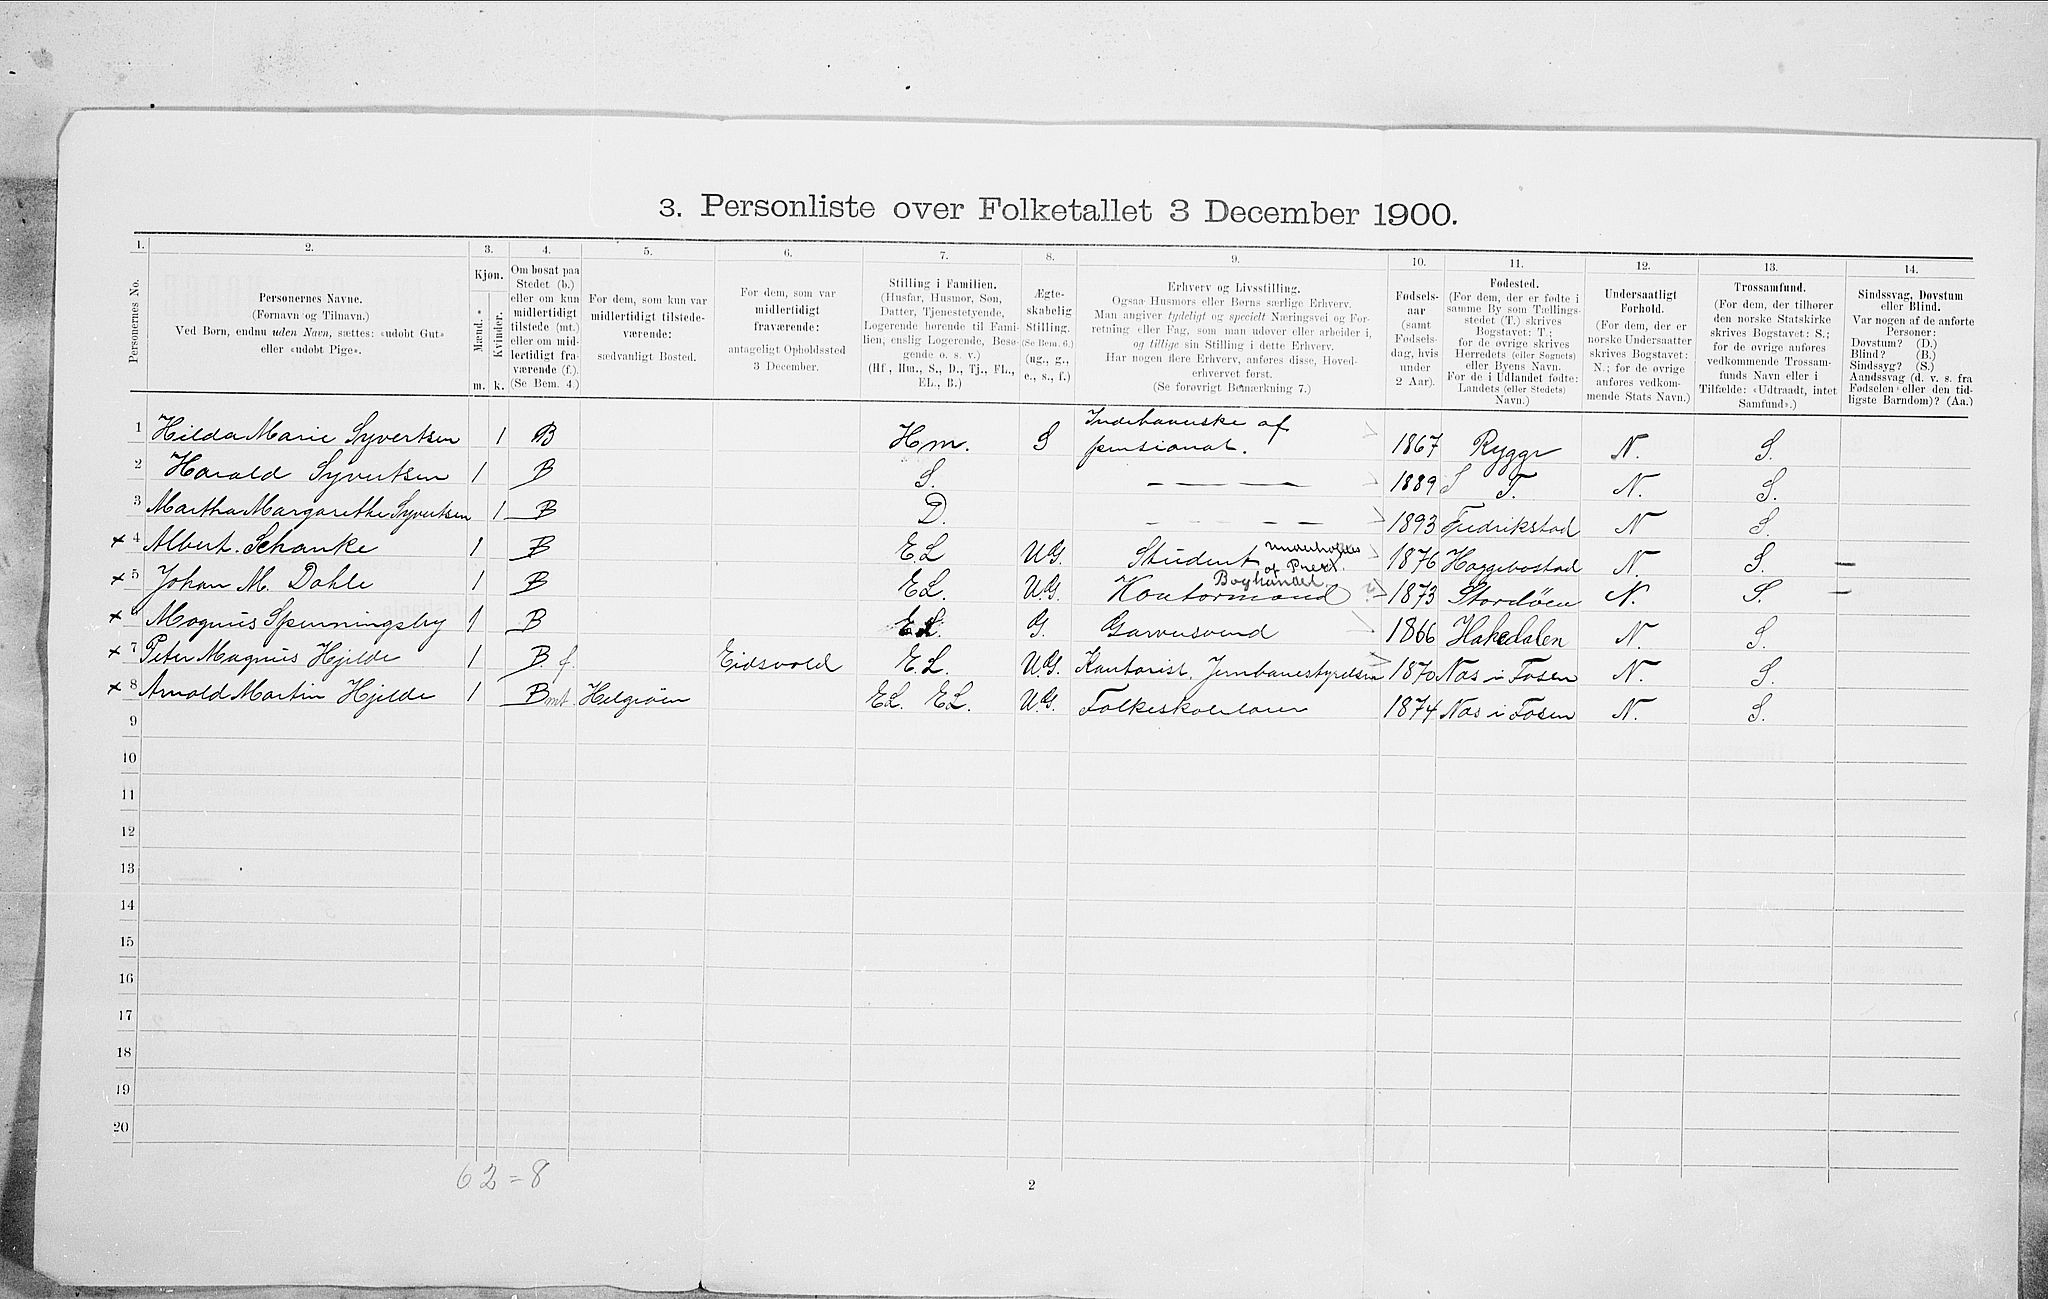 3. Personliste over Folketallet 3 December 1900.
1. 2. 3. 4. 5. 6. 7. 8. 9. 10. 11. 12. 13. 14.
Personernes No.
Personernes Navne.
(Fornavn og Tilnavn.)
Ved Børn, endnu uden Navn, sættes: «udøbt Gut»
eller «udøbt Pige».
Kjøn.
Mænd.
Kvinder.
m. k.
Om bosat paa
Stedet (b.)
eller om kun
midlertidigt
tilstede (mt.)
eller om mid-
lertidigt fra-
værende (f.).
(Se Bem. 4.)
For dem, som kun var
midlertidigt tilstede-
værende:
sædvanligt Bosted.
For dem, som var
midlertidigt
fraværende:
antageligt Opholdssted
3 December.
Stilling i Familien.
(Husfar, Husmor, Søn,
Datter, Tjenestetyende,
Logerende hørende til Fami-
lien, enslig Logerende, Besø-
gende o. s. v.)
(Hf, Hm., S., D., Tj., FL.,
EL., B.)
Ægte-
skabelig
Stilling.
(Se Bem. 6.)
(ug., g.,
e., s., f.)
Erhverv og Livsstilling.
Ogsaa Husmors eller Børns særlige Erhverv.
Man angiver tydeligt og specielt Næringsvei og For-
retning eller Fag, som man udøver eller arbeider i,
og tillige sin Stilling i dette Erhverv.
Har nogen flere Erhverv, anføres disse, Hoved-
erhvervet først.
(Se forøvrigt Bemærkning 7.)
Fødsels-
aar
(samt
Fødsels-
dag, hvis
under
2 Aar).
Fødested.
(For dem, der er fødte i
samme By som Tællings-
stedet (T.) skrives
Bogstavet: T.;
for de øvrige skrives
Herredets (eller Sognets)
eller Byens Navn.
For de i Udlandet fødte:
Landets (eller Stedets)
Navn.)
Undersaatligt
Forhold.
(For dem, der er
norske Undersaatter
skrives Bogstavet:
N.; for de øvrige
anføres vedkom-
mende Stats Navn.)
Trossamfund.
(For dem, der tilhører
den norske Statskirke
skrives Bogstavet: S.;
for de øvrige anføres
vedkommende Trossam-
funds Navn eller i
Tilfælde: «Udtraadt, intet
Samfund».)
Sindssvag, Døvstum
eller Blind.
Var nogen af de anførte
Personer:
Døvstum? (D.)
Blind? (B.)
Sindssyg? (S.)
Aandssvag (d. v. s. fra
Fødselen eller den tid-
ligste Barndom)? (Aa.)
1 Hilda Marie Syvertsen 1 B Hm. S Indehaverske af pensionat. 1867 Rygge N. S.
2 Harald Syvertsen 1 B S. — — — 1889 T. N. S.
3 Martha Margarethe Syvertsen 1 B D. — — — 1893 Fredrikstad N S.
x 4 Albert Schanke 1 B E.L U.G. Student af 1876 N. S. —
x 5 Johan M. Dahle 1 B E.L. U.G. Boghandel. Kontormand 1873 Stordøen N. S. —
x 6 Magnus Spenningsby 1 B E.L. G. Garversvend 1866 Hakedalen N. S.
x 7 Peter Magnus Hjelde 1 B. f. Eidsvold E.L. U.G. Kontorist, Jernbanestyrelsen 1870 Nas i Fosen N. S.
x 8 Arnold Martin Hjelde 1 B mt. E.L. E.L. U.G. Folkeskolelærer 1874 Nas i Fosen N. S.
9
10
11
12
13
14
15
16
17
18
19
20
62=8
2